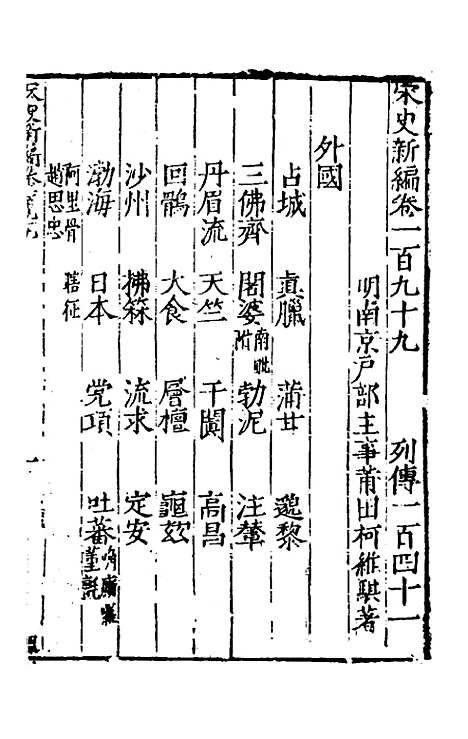 宋史新編卷一百九十九 列傳一百四十一
明南京戸部主事莆田柯維騏著
外國
占城 真臘 蒲甘 邈黎
三佛齊 闍婆南毗附 勃泥 注輦
丹眉流 天竺 于闐 高昌
回鶻 大食 層檀 龜玆
沙州 拂菻 流求 定安
渤海 日本 党項 吐蕃唃廝囉 董氊
阿里骨 瞎征
趙思忠